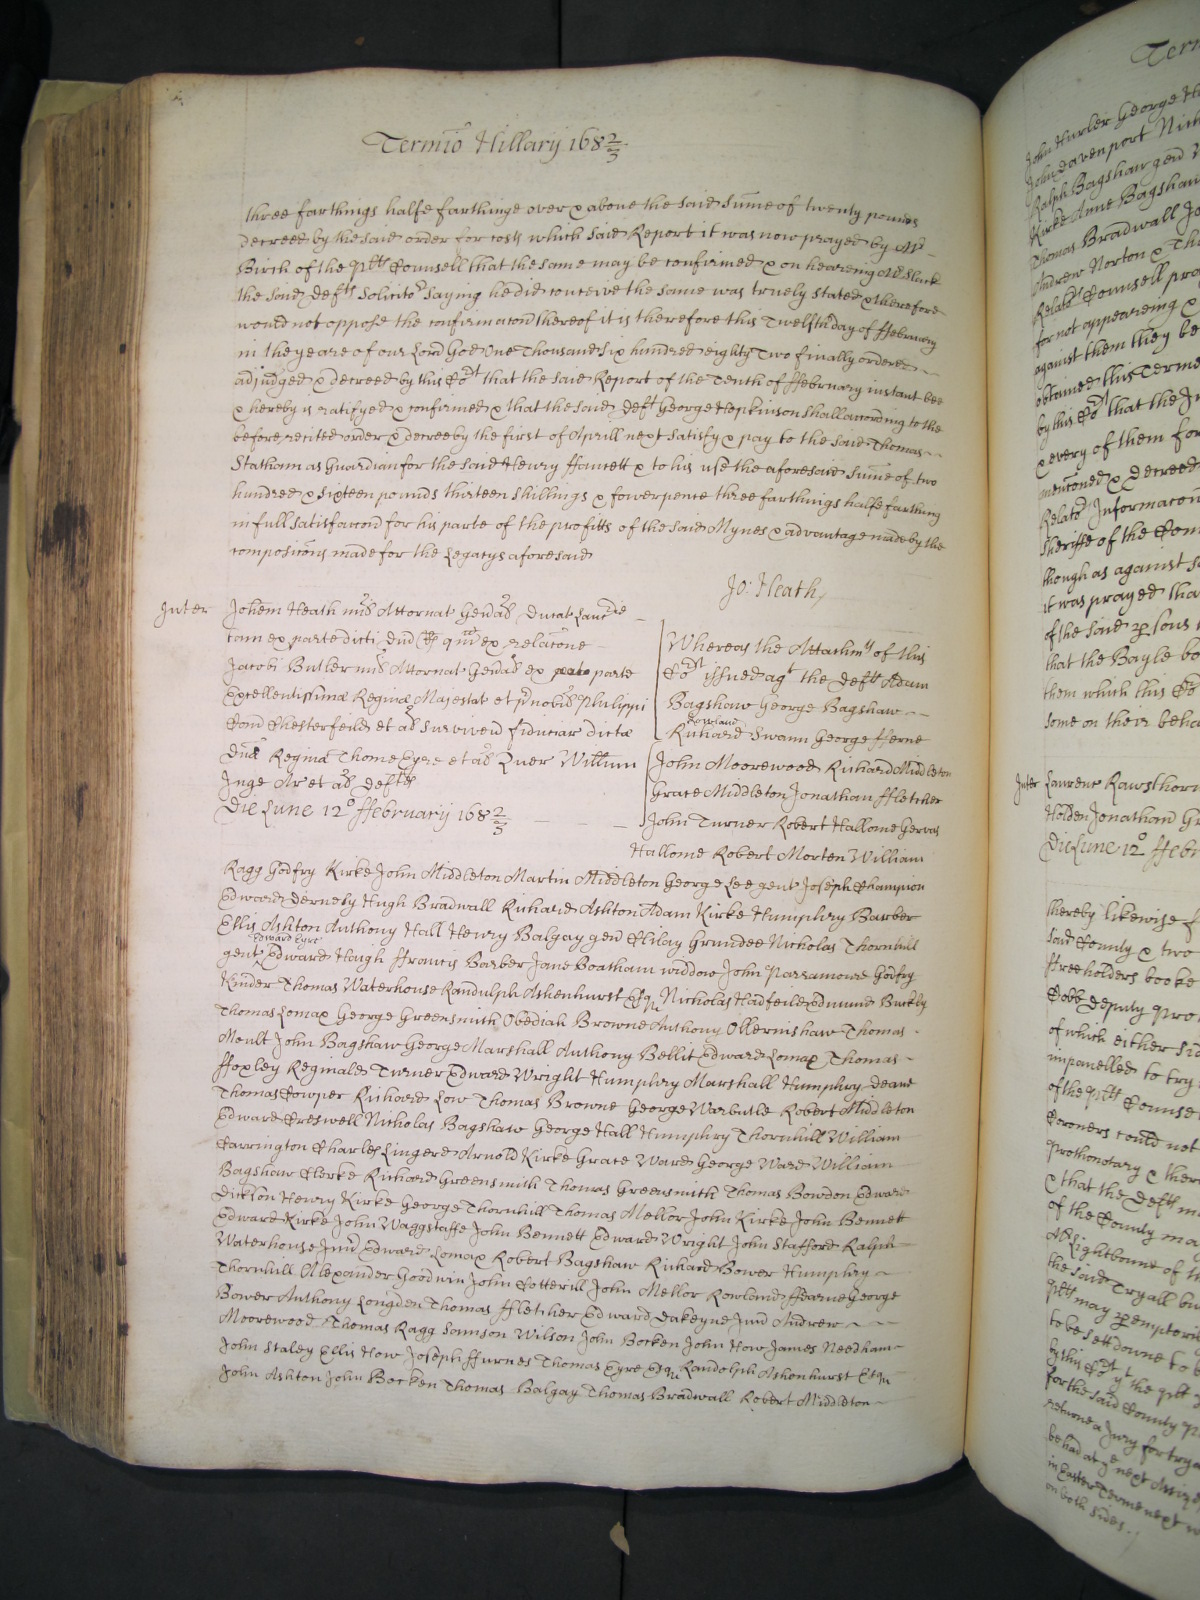 Termiō Hillarij 168 2/3
three farthings halfe farthinge over & above the said Sum̄e of twenty pounds
decreed by the said order for costs which said Report it was now prayed by Mr
Birch of the plts Counsell that the same may be confirmed & on heareing Mr Slack
the said Defts Sollicitor saying he did conceive the same was truely stated & therefore
would not oppose the confirmacōn thereof it is therefore this Twelfth day of ffebruary
in the yeare of our Lord God One Thousand Six hundred eighty Two finally ordered
adjudged & decreed by this Cort that the said Report of the Tenth of ffebruary instant bee
& hereby is ratifyed & confirmed & that the said Deft George Hopkinson shall according to the
before recited order & decree by the first of Aprill next Satisfy & pay to the said Thomas
Statham as Guardian for the said Henry ffawcett & to his use the aforesaid Sum̄e of two
hundred & sixteen pounds thirteen shillings & fower pence three farthings halfe farthing
in full satisfaccōn for his parte of the profitts of the said Mynes & advantage made by the
composicōns made for the Legacys aforesaid
Jo: Heath
Inter
Johem Heath mil Attornat Gen̄al Ducat Lanc
tam ex parte dicti Dn̄i R qm ex relacōne
Jacobi Butler mil Attornat Gen̄al ex parte
Excellentissimæ Reginæ Majestat et p̄nobil Philippi
Com̄ Chesterfeild et al Surviven̄ fiduciar dictæ
Dn̄æ Reginæ Thome Eyre et al Quer Willum
Inge Ar et al Defts
Die Lune 12o ffebruarij 168 2/3
Whereas the Attachmts of this
Cort issued agt the Defts Adam
Bagshaw George Bagshaw
Rowland
Richard Swann George fferne
John Moorewood Richard Middleton
Grace Middleton Jonathan ffletcher
John Turner Robert Hallome Gervas
Hallome Robert Morten William
Ragg Godfry Kirke John Middleton Martin Middleton George Lee gent Joseph Champion
Edward Dernely Hugh Bradwall Richard Ashton Adam Kirke Humphry Barber
Ellis Ashton Anthony Hall Henry Balgay gen̄ Hilary Grundee Nicholas Thornhill
Edward Eyre
gent Edward Haigh ffrancis Barber Jane Boatham widdow John Parramoure Godfry
Kinder Thomas Waterhouse Randulph Ashenhurst Esqr Nicholas Hadfeild Edmund Buckly
Thomas Lomax George Greensmith Obediah Browne Anthony Ollernishaw Thomas
Moult John Bagshaw George Marshall Anthony Bellit Edward Lomax Thomas
ffoxley Reginald Turner Edward Wright Humphry Marshall Humphry Deane
Thomas Cowper Richard Low Thomas Browne George Warbutle Robert Middleton
Edward Creswell Nicholas Bagshaw George Hall Humphry Thornhill William
Carrington Charles Lingerd Arnold Kirke Grace Ward George Ward William
Bagshaw Clerke Richard Greensmith Thomas Greensmith Thomas Bowdon Edward
Dickson Henry Kirke George Thornhill Thomas Mellor John Kirke John Bennett
Edward Kirke John Waggstaffe John Bennett Edward Wright John Stafford Ralph
Waterhouse Junr Edward Lomax Robert Bagshaw Richard Bower Humphry
Thornhill Alexander Goodwin John Cotterill John Mellor Rowland ffearne George
Bower Anthony Longden Thomas ffletcher Edward Dakeyne Junr Andrew
Moorewood Thomas Ragg Samson Wilson John Bocken John How James Needham
John Staley Ellis How Joseph ffurnes Thomas Eyre Esqr Randolph Ashenhurst Esqr
John Ashton John Bocken Thomas Balgay Thomas Bradwall Robert Middleton
John Hurler George
John Davenport
Ralph Bagshaw gen̄
Kirke Anne Bagshaw
Thomas Bradwall
Andrew Norton &
Relators Counsell
for not appeareing &
against them they be
obteined this Terme
by this Cort that the
& every of them for
menc̄oned & decreed
Relators Informacōn
Sheriffe of the
though as against
it was prayed that
of the said psons
that the Bayle
them which this Cot
some on their
Inter
Laurence Rawsthorn
Holden Jonathan
Die Lune 12o
thereby likewise
said County & two
ffreeholders booke
Cobb deputy
of which either
impanelled to try
of the plts Counsell
Coroners could not
Prothonotary &
& that the Defts
of the County
Mr Lightbone of
the said Tryall
plts may pemptorily
to be sett downe to
by this Cort yt the plt
for the said County
returne a Jury for tryall
be had at ye next Assizes
in Easter Terme next
on both sides